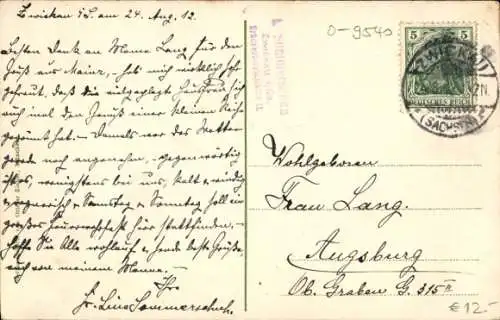 Zwickau i/S. am 24. Aug. 12.
Besten Dank an Mama Lang für den
Gruß aus Mainz, hab mich wirklich sehr
gefreut, daß die vielgeplagte Hausfrau sich
auch mal den Genuß einer kleinen Reise
gegönnt hat. – Damals war das Wetter
gerade noch angenehm, gegenwärtig
ist es, wenigstens bei uns, kalt & windig
& regnerisch & Samstag & Sonntag soll ein
großes Feuerwehrfest hier stattfinden. –
Hoffe Sie Alle wohlauf & sende beste Grüße,
auch von meinem Manne. –
Ihre
Fr. Lina Sommerschuh.
0-9540
5 5
DEUTSCHES REICH
ZWICKAU
(SACHSEN)
Wohlgeboren
Frau Lang.
Augsburg
Ob. Graben G. 315 II
€ 12.-